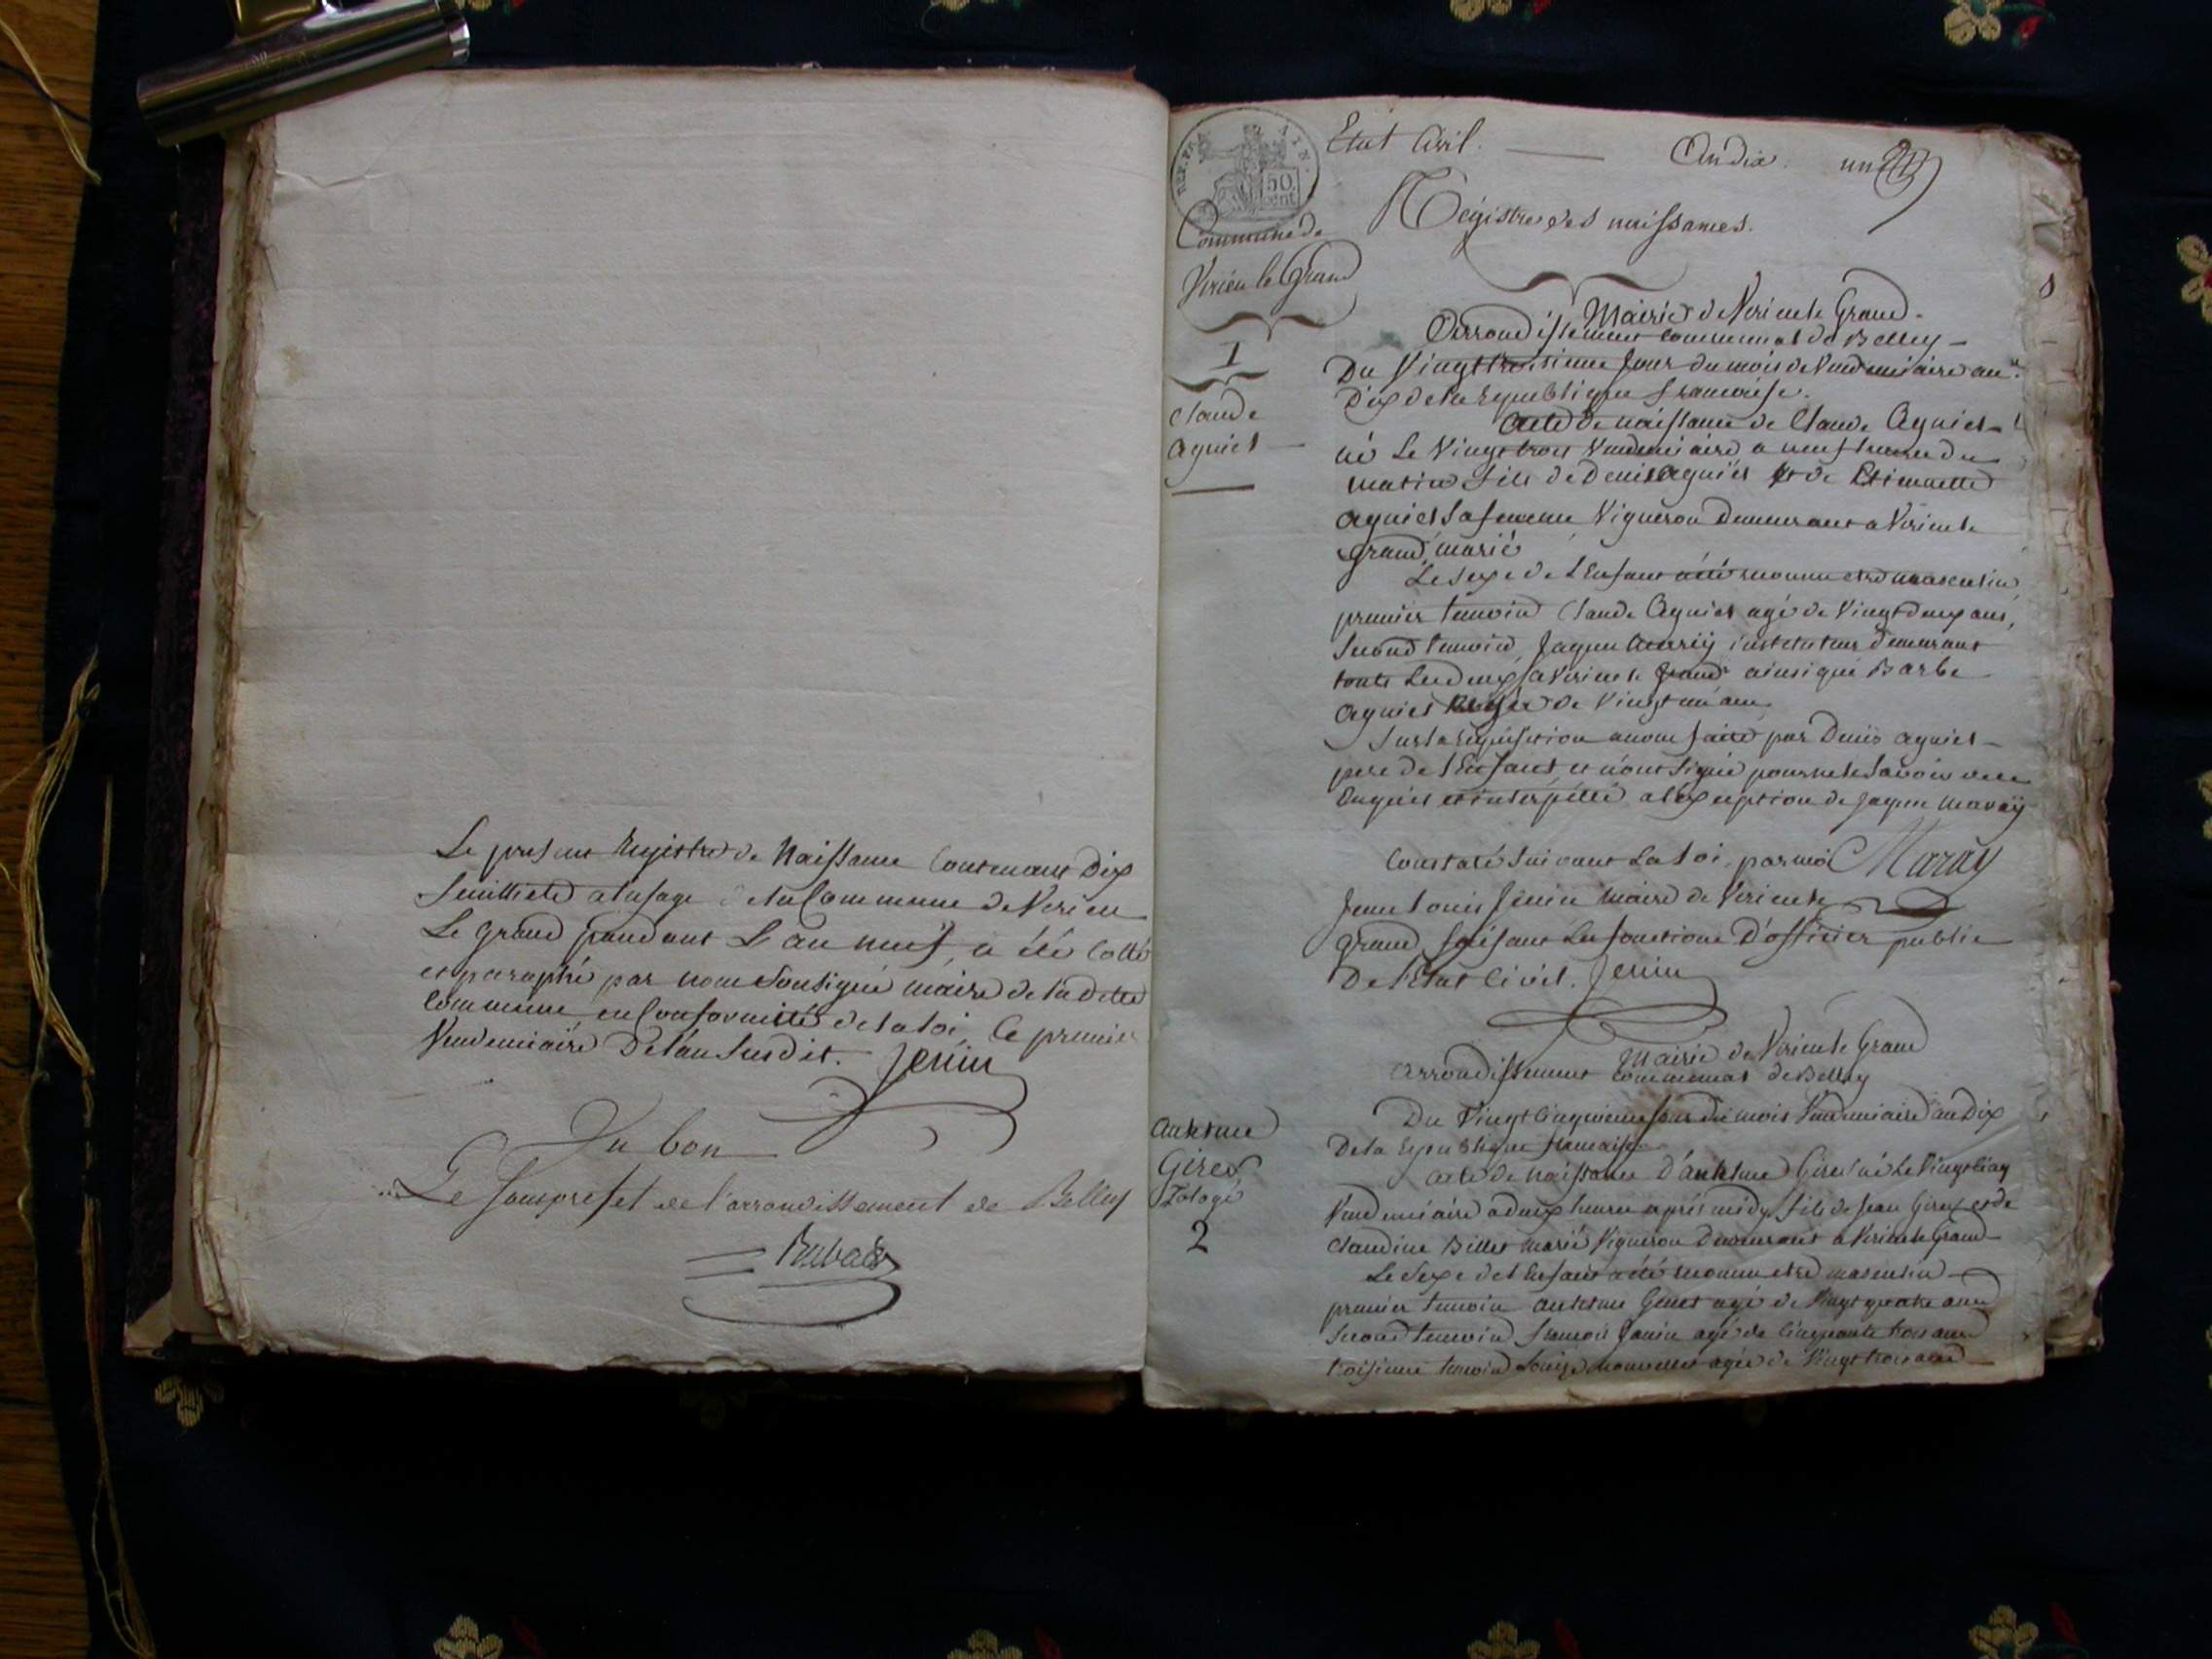 Le present Registre de Naissance Contenant Dix
feuillets a lusage de la Commune de Virieu
Le grand pendant L'an neuf, a été Cotté
et paraphé par nous soussigné maire de ladette
Commune en Conformitté de la loi, le premier
Vendemiaire De l'an Susdit. Jenin
Vu bon
Le Sousprefet de l'arrondissement de Belley
REP. FRA. AIN.
50 cent
Etat Civil. An dix. un
Commune de
Virieu le Grand
Régistre des naissances.
Mairie de Virieu le Grand.
Arrondissement communal de Belley
1
Du Vingt troisieme Jour du mois de Vendemiaire an
Dix de la Republique francaise.
Claude
Agniel
Acte de naissance de Claude Agniel
né Le Vingt trois Vendemiaire a neuf heures du
matin fils de Denis Agniel et de Etiennette
Agniel Sa femme Vigneron Demeurant a Virieu le
grand, marié
Le Sexe de L'Enfant a été reconnu etre masculin
premier temoin Claude Agniel agé de Vingt deux ans,
Second temoin, Jaque instituteur demeurant
touts Les deux a Virieu le grand ainsi que Barbe
Agniel agée de Vingt un ans
Sur la requisition a nous faite par Denis agniel
pere de l'Enfant et n'ont Signé pour ne le Savoir de ce
Enquis et interpellé a l'exception de Jaque Maray
Constaté Suivant La loi, par moi Maray
Jean Louis Jenin maire de Virieu le
grand, faisant Les fonctions D'officier public
De l'Etat Civil. Jenin
Mairie de Virieu le Grand
Arrondissement Communal de Belley
Du Vingt Cinquieme jour du mois Vendemiaire an Dix
De la Republique francaise
Anthelme
Girel
2
Acte de naissance d'Anthelme Girel né Le Vingt Cinq
Vendemiaire a deux heures aprés midy fils de Jean Girel et de
Claudine Billet marié Vigneron Demeurant a Virieu le Grand
Le Sexe de l'Enfant a été reconnu etre masculin
premier temoin anthelme agé de Vingt quatre ans
Second temoin francois Janin agé de Cinquante trois ans
troisieme temoin Louize agée de Vingt trois ans